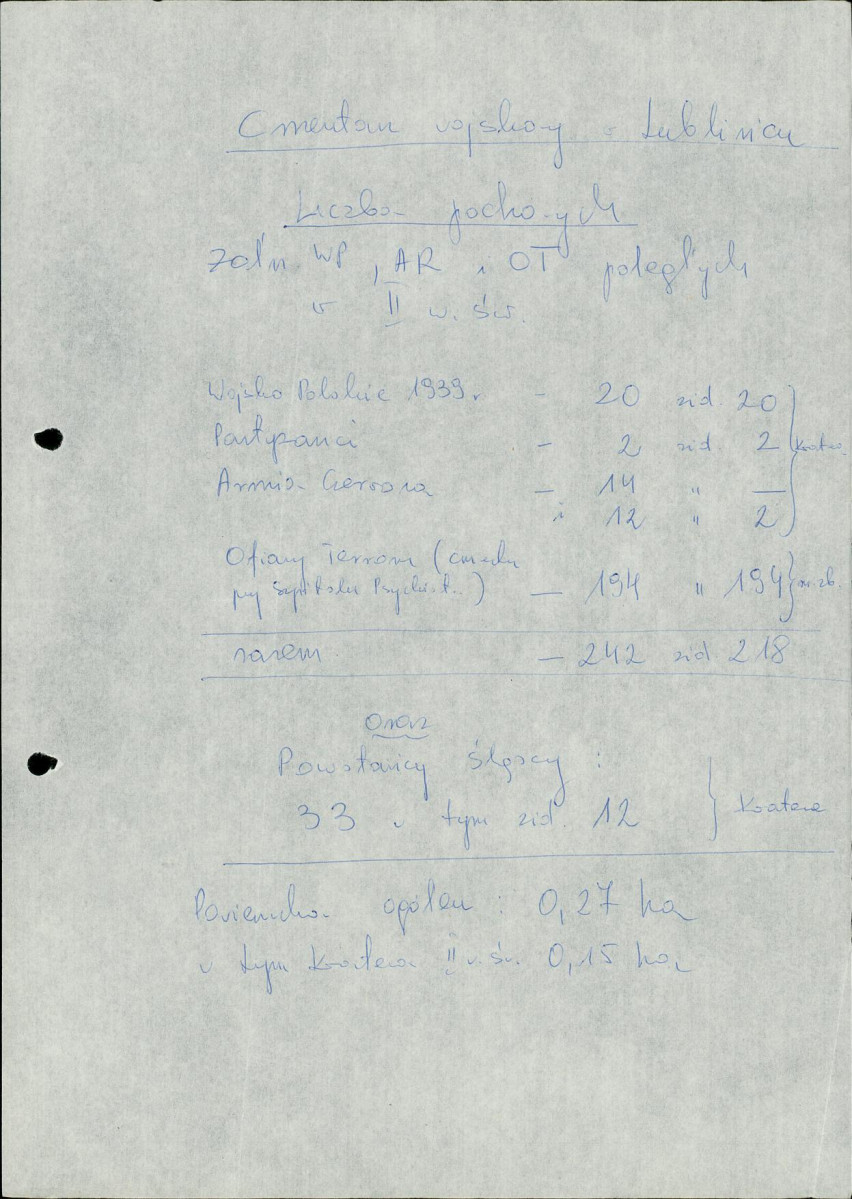 Cmentarz wojskowy w Lublińcu
Liczba pochow.ych
Żołn. WP, AR i OT poległych
w II w. św.
Wojsko Polskie 1939 r. - 20 zid. 20
Partyzanci - 2 zid. 2 } kwatera
Armia Czerwona - 14 " —
i 12 " 2
Ofiary Terroru (cment.
przy Szpitalu Psychiat..) - 194 " 194 } m. zb.
razem - 242 zid 218
oraz
Powstańcy śląscy :
33 w tym zid. 12 } kwatera
Powierzchn. ogółem : 0,27 ha
w tym kwatera II w. św. 0,15 ha